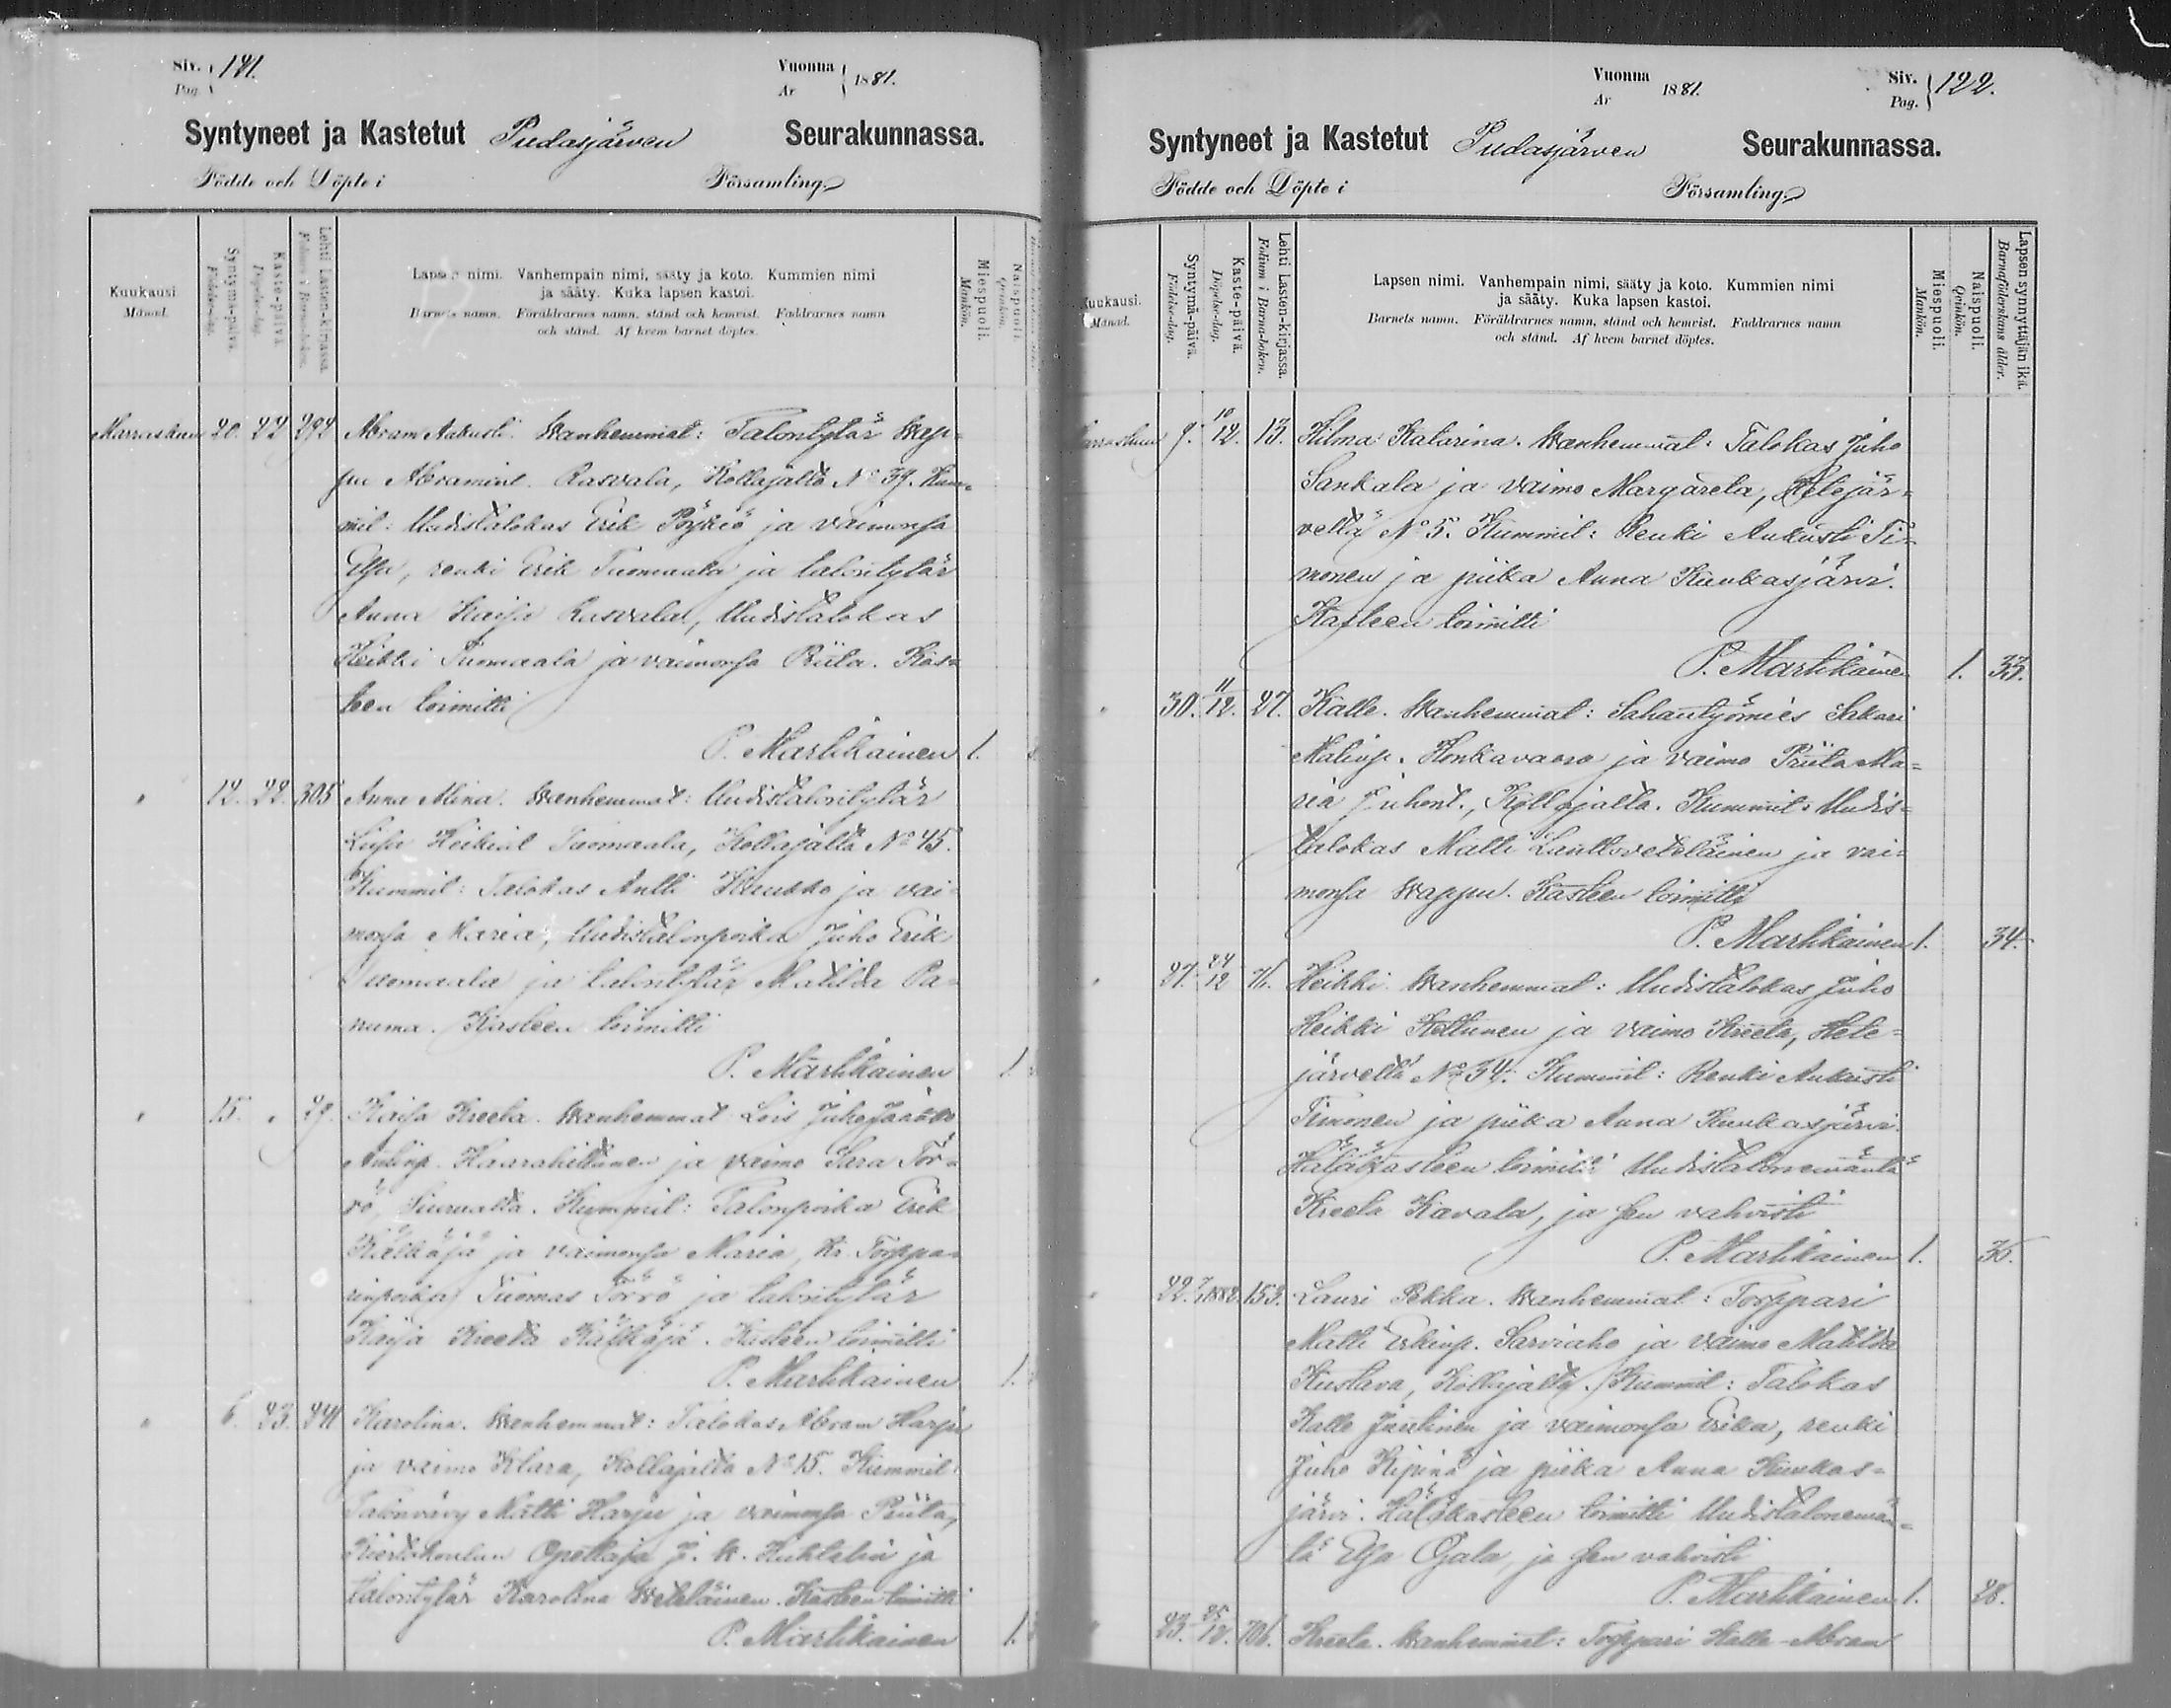 Siv. 121.
Pag.
Vuonna 1881.
Ar
Syntyneet ja Kastetut Pudasjärven Seurakunnassa.
Födde och Döpte i Församling
Kuukausi.
Månad.
Syntymä-päivä.
Födelse-dag.
Kaste-päivä.
Döpelse-dag.
Lehti Lasten-kirjassa.
Folium i Barna-boken.
Lapsen nimi. Vanhempain nimi, sääty ja koto. Kummien nimi
ja sääty. Kuka lapsen kastoi.
Barnets namn. Föräldrarnes namn, stånd och hemvist. Faddrarnes namn
och stånd. Af hvem barnet döptes.
Miespuoli.
Mankön.
Naispuoli.
Qvinkön.
Marraskuu 20. 22 292 Abram Aukusti. Wanhemmat: Talontytär Wap-
pu Abramint. Rasvala, Kollajalta No 39. Kum-
mit: Uudistalokas Erik Pöykiö ja vaimonsa
Elsa, renki Erik Tuomaala ja talontytär
Anna Kaisa Rasvala, Uudistalokas
Heikki Tuomaala ja vaimonsa Riita. Kas-
teen toimitti
P. Martikainen 1.
" 12. 22. 305 Anna Miina. Wanhemmat: Uudistalontytär
Liisa Heikint Tuomaala, Kollajalta No 45.
Kummit: Talokas Antti Kuukko ja vai-
monsa Maria, Uudistalonpoika Juho Erik
Tuomaala ja talontytär Matilda Pa-
numa. Kasteen toimitti
P. Martikainen 1.
" 15. " 29. Kaisa Kreeta. Wanhemmat Lois Juho Jaakko
Antinp. Haarahiltunen ja vaimo Sara Tör-
rö, Siurualta. Kummit: Talonpoika Erik
Kälkäjä ja vaimonsa Maria, Kr. Torppa-
rinpoika Tuomas Törrö ja talontytär
Kaisa Kreeta Kälkäjä. Kasteen toimitti
P. Martikainen 1.
" 6. 23. 241 Karolina. Wanhemmat: Talokas Abram Harju
ja vaimo Klara, Kollajalta No 15. Kummit
Talonvävy Matti Harju ja vaimonsa Priita,
Kiertokoulun Opettaja J. W. Huhtalin ja
talontytär Karolina Weteläinen. Kasteen toimitti
P. Martikainen 1.
Vuonna 1881.
Ar
Siv. 122.
Pag.
Syntyneet ja Kastetut Pudasjärven Seurakunnassa.
Födde och Döpte i Församling
Kuukausi.
Månad.
Syntymä-päivä.
Födelse-dag.
Kaste-päivä.
Döpelse-dag.
Lehti Lasten-kirjassa.
Folium i Barna-boken.
Lapsen nimi. Vanhempain nimi, sääty ja koto. Kummien nimi
ja sääty. Kuka lapsen kastoi.
Barnets namn. Föräldrarnes namn, stånd och hemvist. Faddrarnes namn
och stånd. Af hvem barnet döptes.
Miespuoli.
Mankön.
Naispuoli.
Qvinkön.
Lapsen synnyttäjän ikä.
Barnaföderskans ålder.
Marraskuu 9. 10/12. 13. Hilma Katarina. Wanhemmat: Talokas Juho
Sankala ja vaimo Margareta, Hetejär-
veltä No 5. Kummit: Renki Aukusti Ti-
monen ja piika Anna Kuukasjärvi.
Kasteen toimitti
P. Martikainen 1. 33.
" 30. 11/12. 27. Kalle. Wanhemmat: Sahantyömies Sakari
Matinp. Honkavaara ja vaimo Priita Ma-
ria Juhont., Kollajalta. Kummit: Uudis-
talokas Matti Lanttoveteläinen ja vai-
monsa Wappu. Kasteen toimitti
P. Martikainen 1. 34.
" 27. 24/12 71. Heikki. Wanhemmat: Uudistalokas Juho
Heikki Kettunen ja vaimo Kreeta, Hete-
järveltä No 34. Kummit: Renki Aukusti
Timonen ja piika Anna Kuukasjärvi.
Hätäkasteen toimitti Uudistalonemäntä
Kreeta Kavala, ja sen vahvisti
P. Martikainen 1. 36.
" 22. 7/1 1882. 153. Lauri Pekka. Wanhemmat: Torppari
Matti Erkinp. Sarviaho ja vaimo Matilda
Kustava, Kollajalta. Kummit: Talokas
Kalle Jaatinen ja vaimonsa Erika, renki
Juho Kipinä ja piika Anna Kuukas-
järvi. Hätäkasteen toimitti Uudistaloneman-
tä Elsa Ojala, ja sen vahvisti
P. Martikainen 1. 28.
" 23. 25/12. 706. Kreeta. Wanhemmat: Torppari Kalle Abram